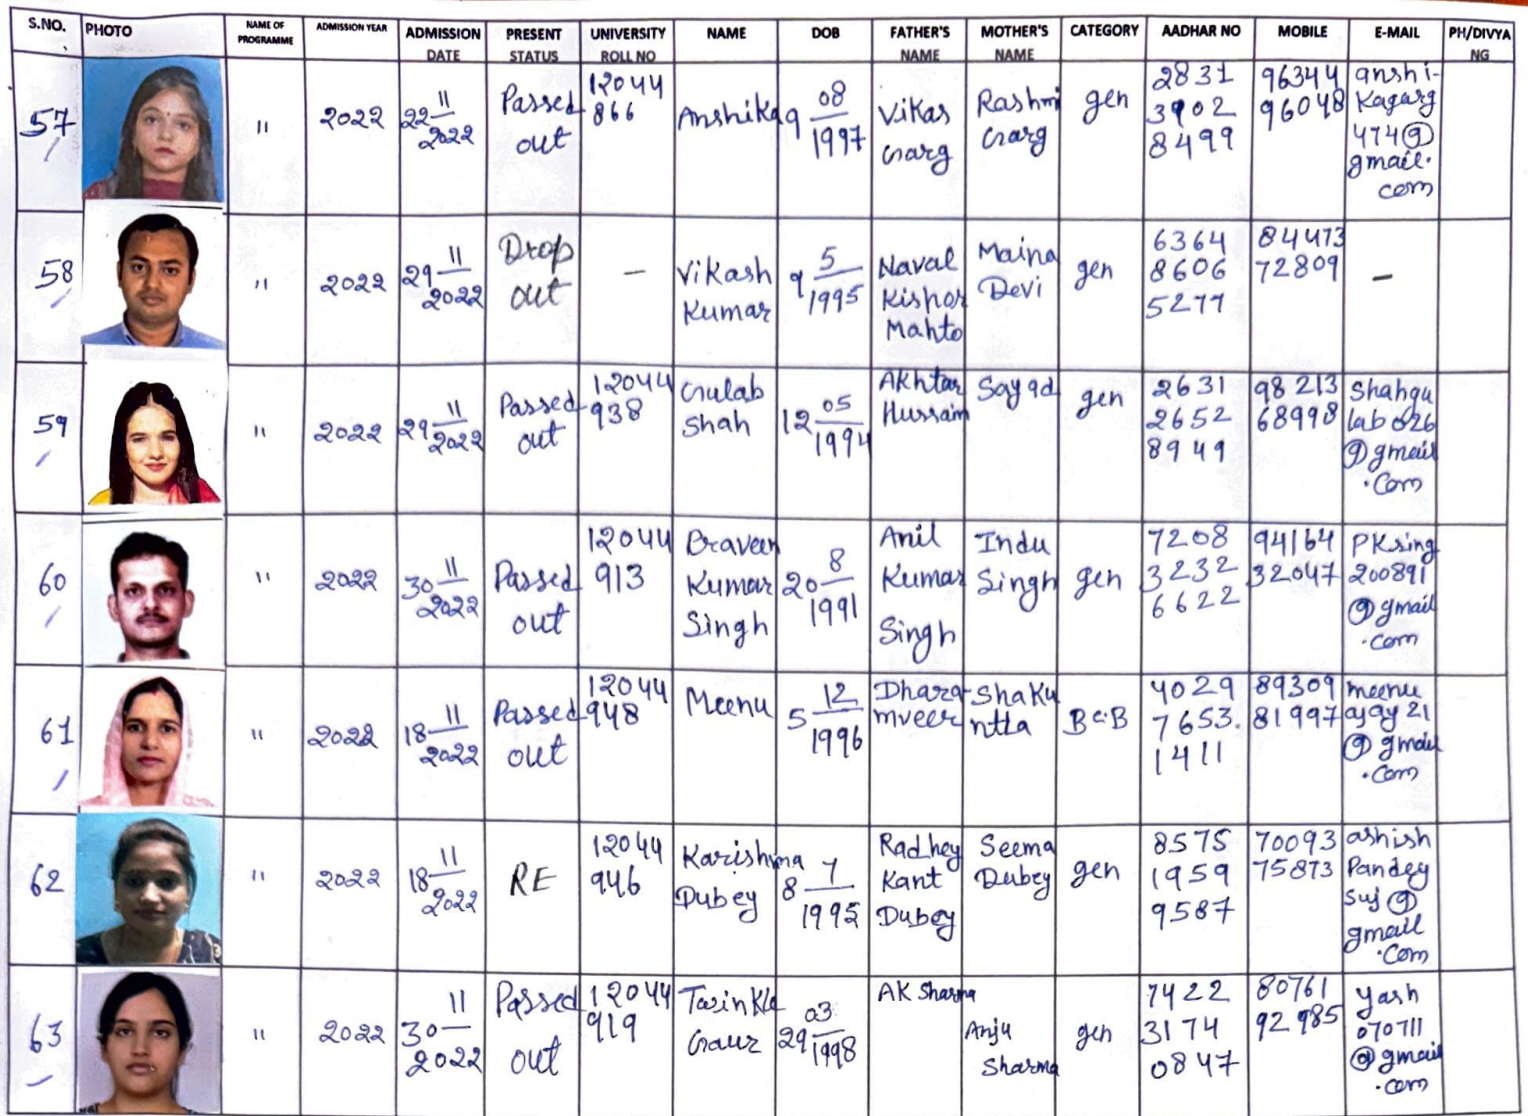 S.NO.
PHOTO
NAME OF
PROGRAMME
ADMISSION YEAR
ADMISSION
DATE
PRESENT
STATUS
UNIVERSITY
ROLL NO
NAME
DOB
FATHER'S
NAME
MOTHER'S
NAME
CATEGORY
AADHAR NO
MOBILE
E-MAIL
PH/DIVYA
NG
57
"
2022
22 11/2022
Passed
out
12044
866
Anshika
9 08/1997
Vikas
Garg
Rashmi
Garg
gen
2831
3902
8499
96344
96048
anshi-
kagarg
474@
gmail.
com
58
"
2022
29 11/2022
Drop
out
—
Vikash
Kumar
9 5/1995
Naval
Kishor
Mahto
Maina
Devi
gen
6364
8606
5277
84473
72809
–
59
"
2022
29 11/2022
Passed
out
12044
938
Gulab
Shah
12 05/1994
Akhtar
Hussain
Sayad
gen
2631
2652
8949
98213
68998
Shahgu
lab026
@gmail
.Com
60
"
2022
30 11/2022
Passed
out
12044
913
Praveen
Kumar
Singh
20 8/1991
Anil
Kumar
Singh
Indu
Singh
gen
7208
3232
6622
94164
32047
PKsing
200891
@gmail
.com
61
"
2022
18 11/2022
Passed
out
12044
948
Meenu
5 12/1996
Dhara-
mveer
Shaku
ntla
BCB
4029
7653.
1411
89309
81997
meenu
ajay21
@gmail
.com
62
"
2022
18 11/2022
RE
12044
946
Karishma
Dubey
8 7/1995
Radhey
Kant
Dubey
Seema
Dubey
gen
8575
1959
9587
70093
75873
ashish
Pandey
suj@
gmail
.Com
63
"
2022
30 11/2022
Passed
out
12044
919
Twinkle
Gaur
29 03/1998
AK Sharma
Anju
Sharma
gen
7422
3174
0847
80761
92985
yash
070711
@gmail
.com